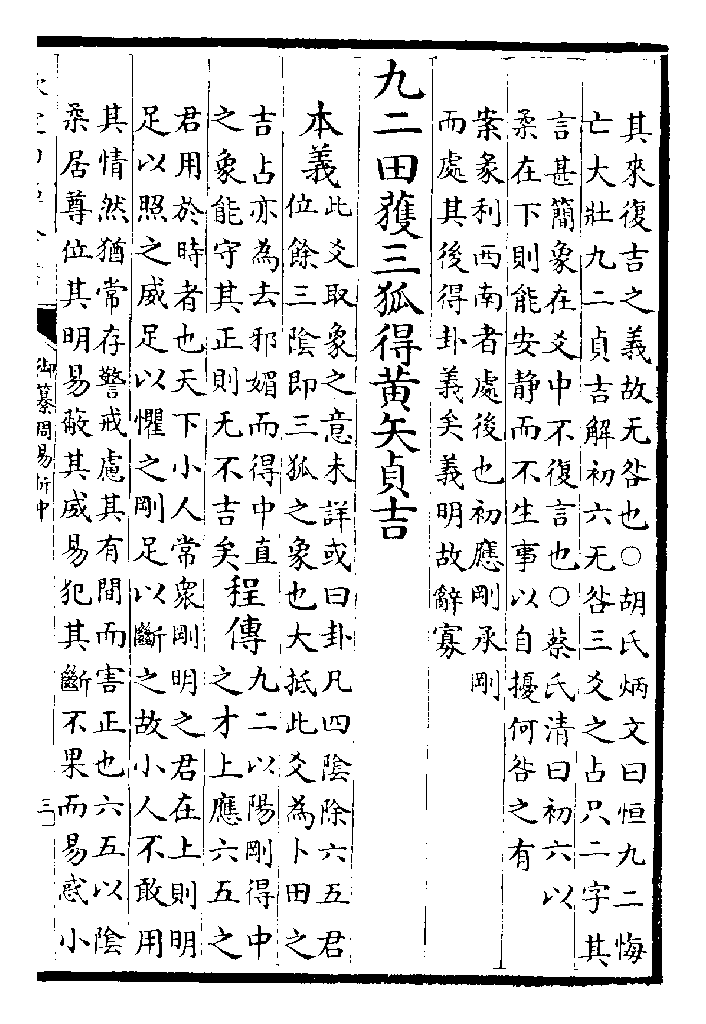 其來復吉之義故无咎也○胡氏炳文曰恒九二悔
亡大壯九二貞吉解初六无咎三爻之占只二字其
言甚簡象在爻中不復言也○蔡氏清曰初六以
柔在下則能安靜而不生事以自擾何咎之有
案彖利西南者處後也初應剛承剛
而處其後得卦義矣義明故辭寡
九二田獲三狐得黃矢貞吉
本義
此爻取象之意未詳或曰卦凡四陰除六五君
位餘三陰即三狐之象也大抵此爻為卜田之
吉占亦為去邪媚而得中直
之象能守其正則无不吉矣
程傳
九二以陽剛得中
之才上應六五之
君用於時者也天下小人常衆剛明之君在上則明
足以照之威足以懼之剛足以斷之故小人不敢用
其情然猶常存警戒慮其有間而害正也六五以陰
柔居尊位其明易蔽其威易犯其斷不果而易惑小
御纂周易折中